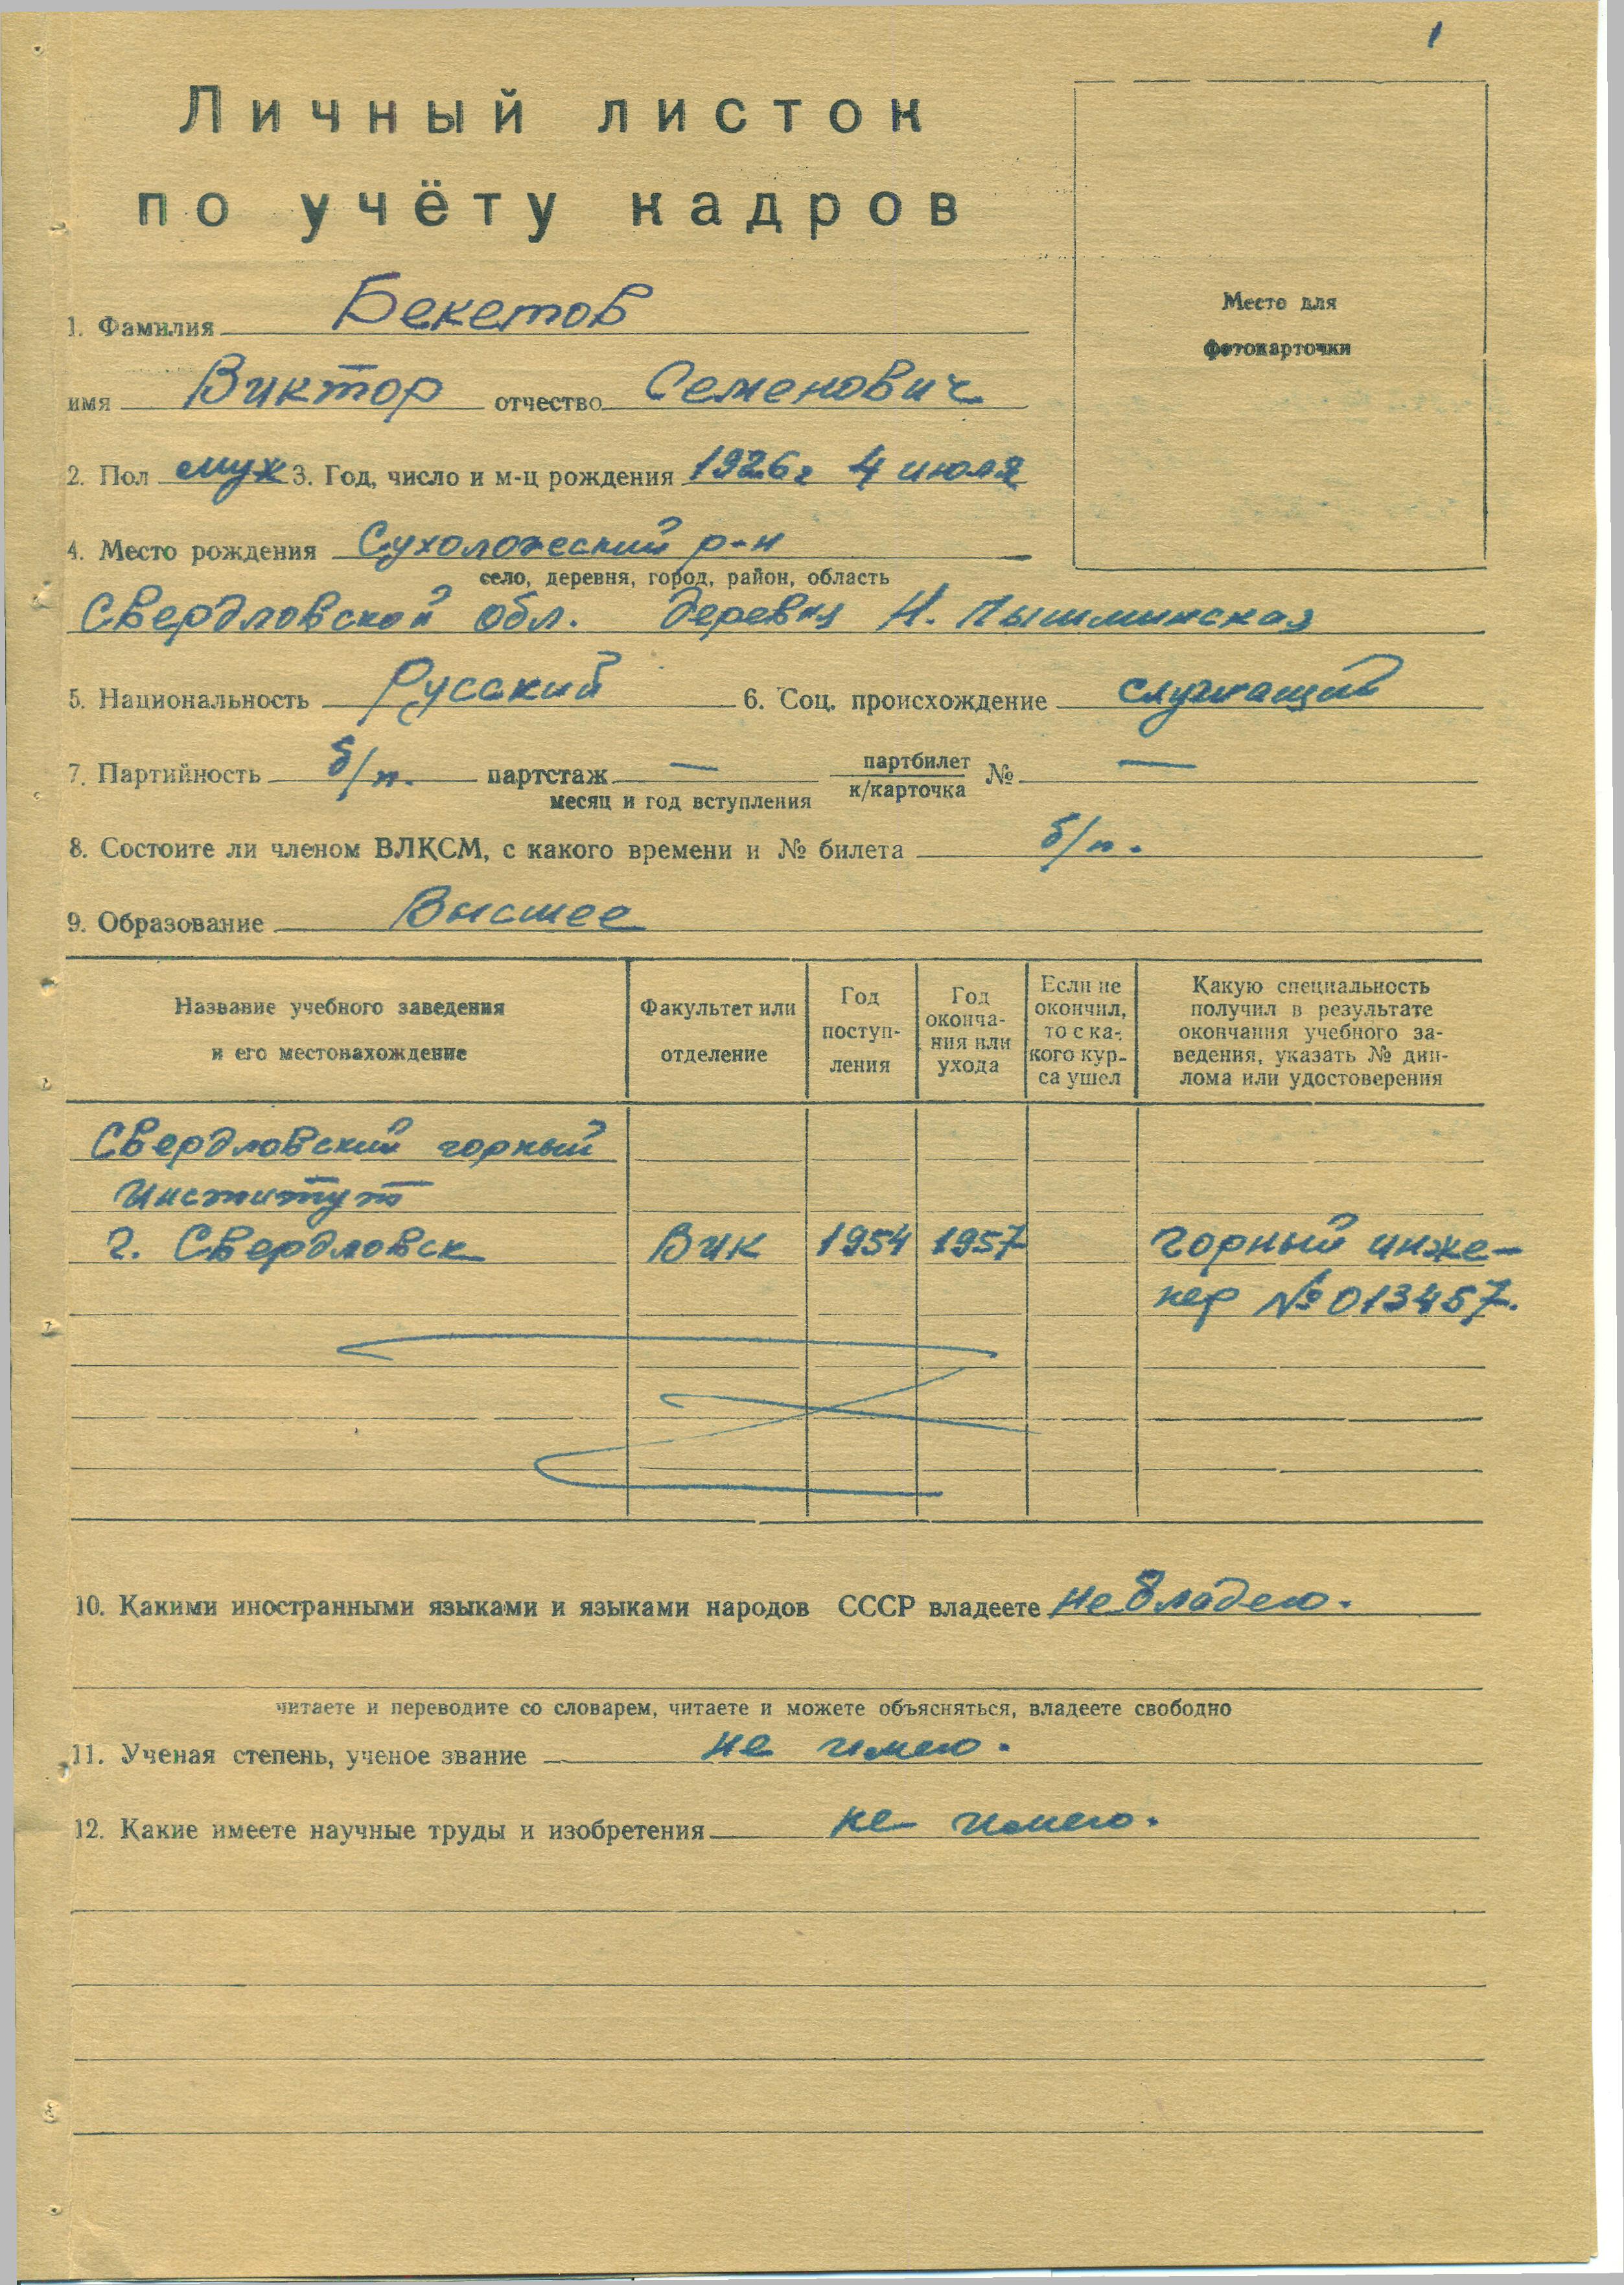 1
Личный листок
по учёту кадров
Место для
фотокарточки
1. Фамилия Бекетов
имя Виктор отчество Семенович
2. Пол муж 3. Год, число и м-ц рождения 1926г 4 июля
4. Место рождения Сухоложеский р-н
село, деревня, город, район, область
Свердловской обл. деревня Н. Пышминская
5. Национальность Русский 6. Соц. происхождение служащий
7. Партийность б/п. партстаж — партбилет № —
месяц и год вступления к/карточка
8. Состоите ли членом ВЛКСМ, с какого времени и № билета б/п.
9. Образование Высшее
Название учебного заведения
и его местонахождение
Факультет или
отделение
Год
поступ-
ления
Год
оконча-
ния или
ухода
Если не
окончил,
то с ка-
кого кур-
са ушел
Какую специальность
получил в результате
окончания учебного за-
ведения, указать № дип-
лома или удостоверения
Свердловский горный
Институт
г. Свердловск Вик 1954 1957 горный инже-
нер № 013457.
10. Какими иностранными языками и языками народов СССР владеете не владею.
читаете и переводите со словарем, читаете и можете объясняться, владеете свободно
11. Ученая степень, ученое звание не имею.
12. Какие имеете научные труды и изобретения не имею.